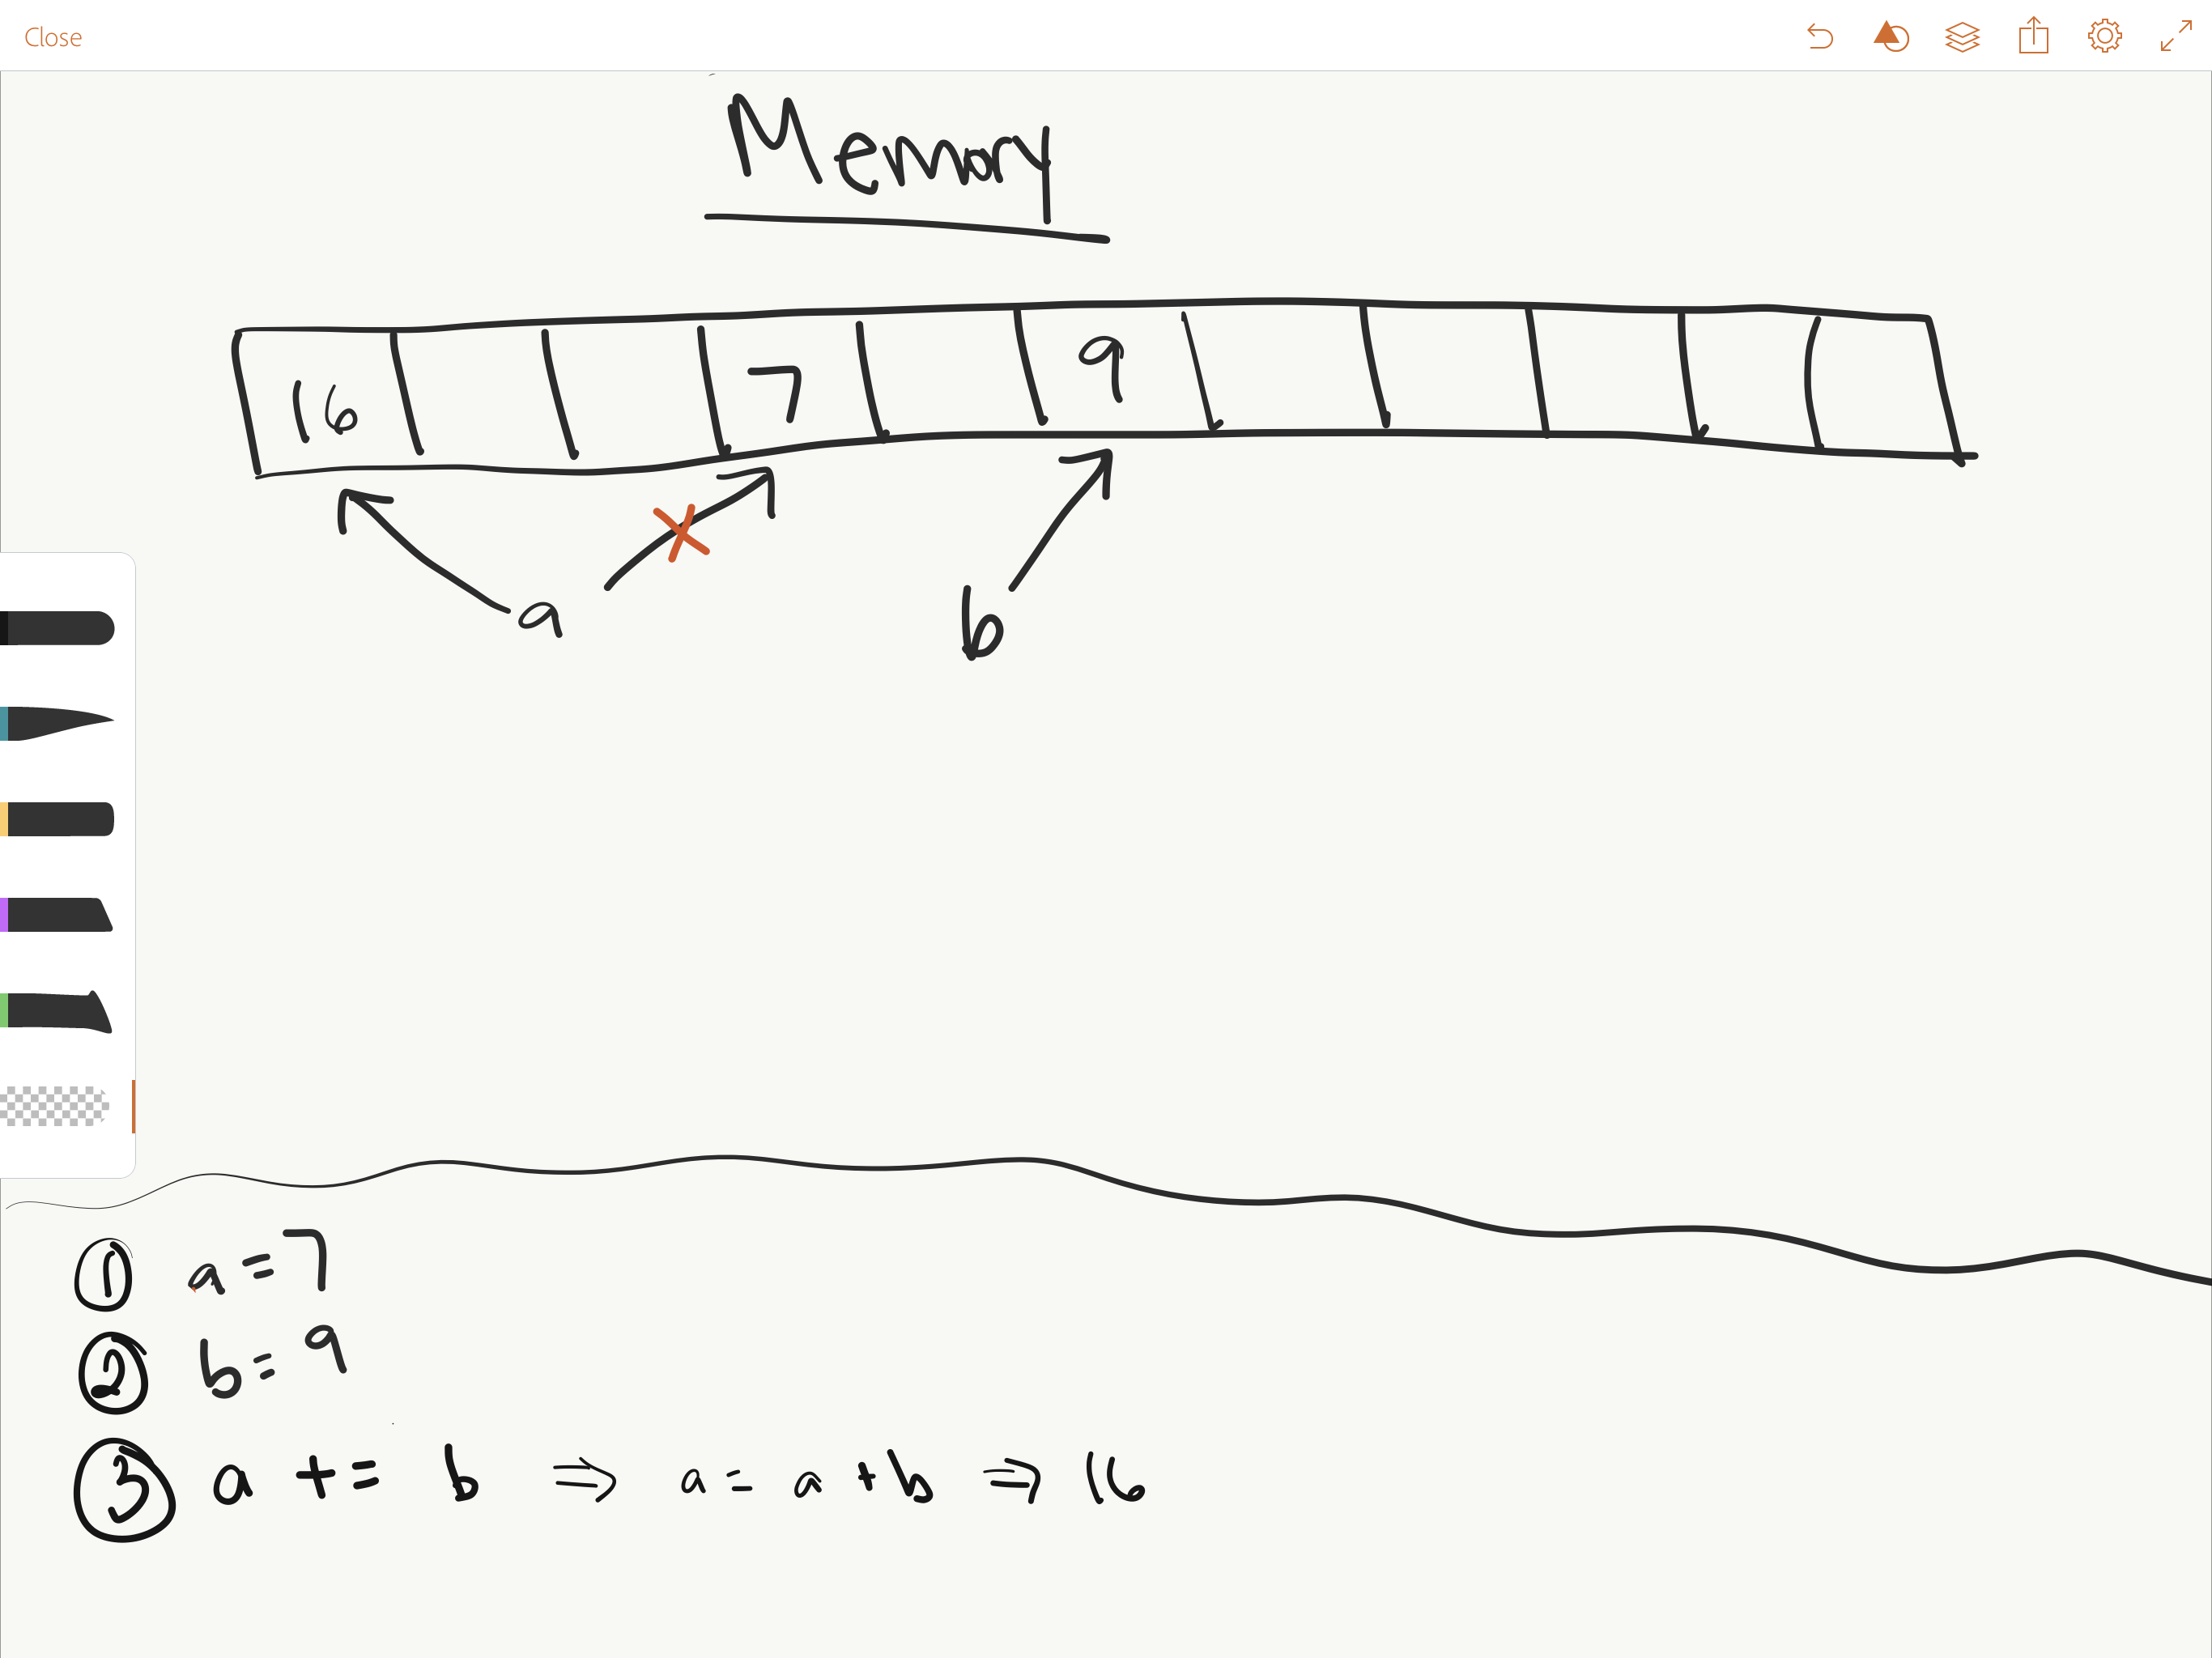 Close
Memory
16 7 9
a b
1 a = 7
2 b = 9
3 a += b ⇒ a = a + b ⇒ 16